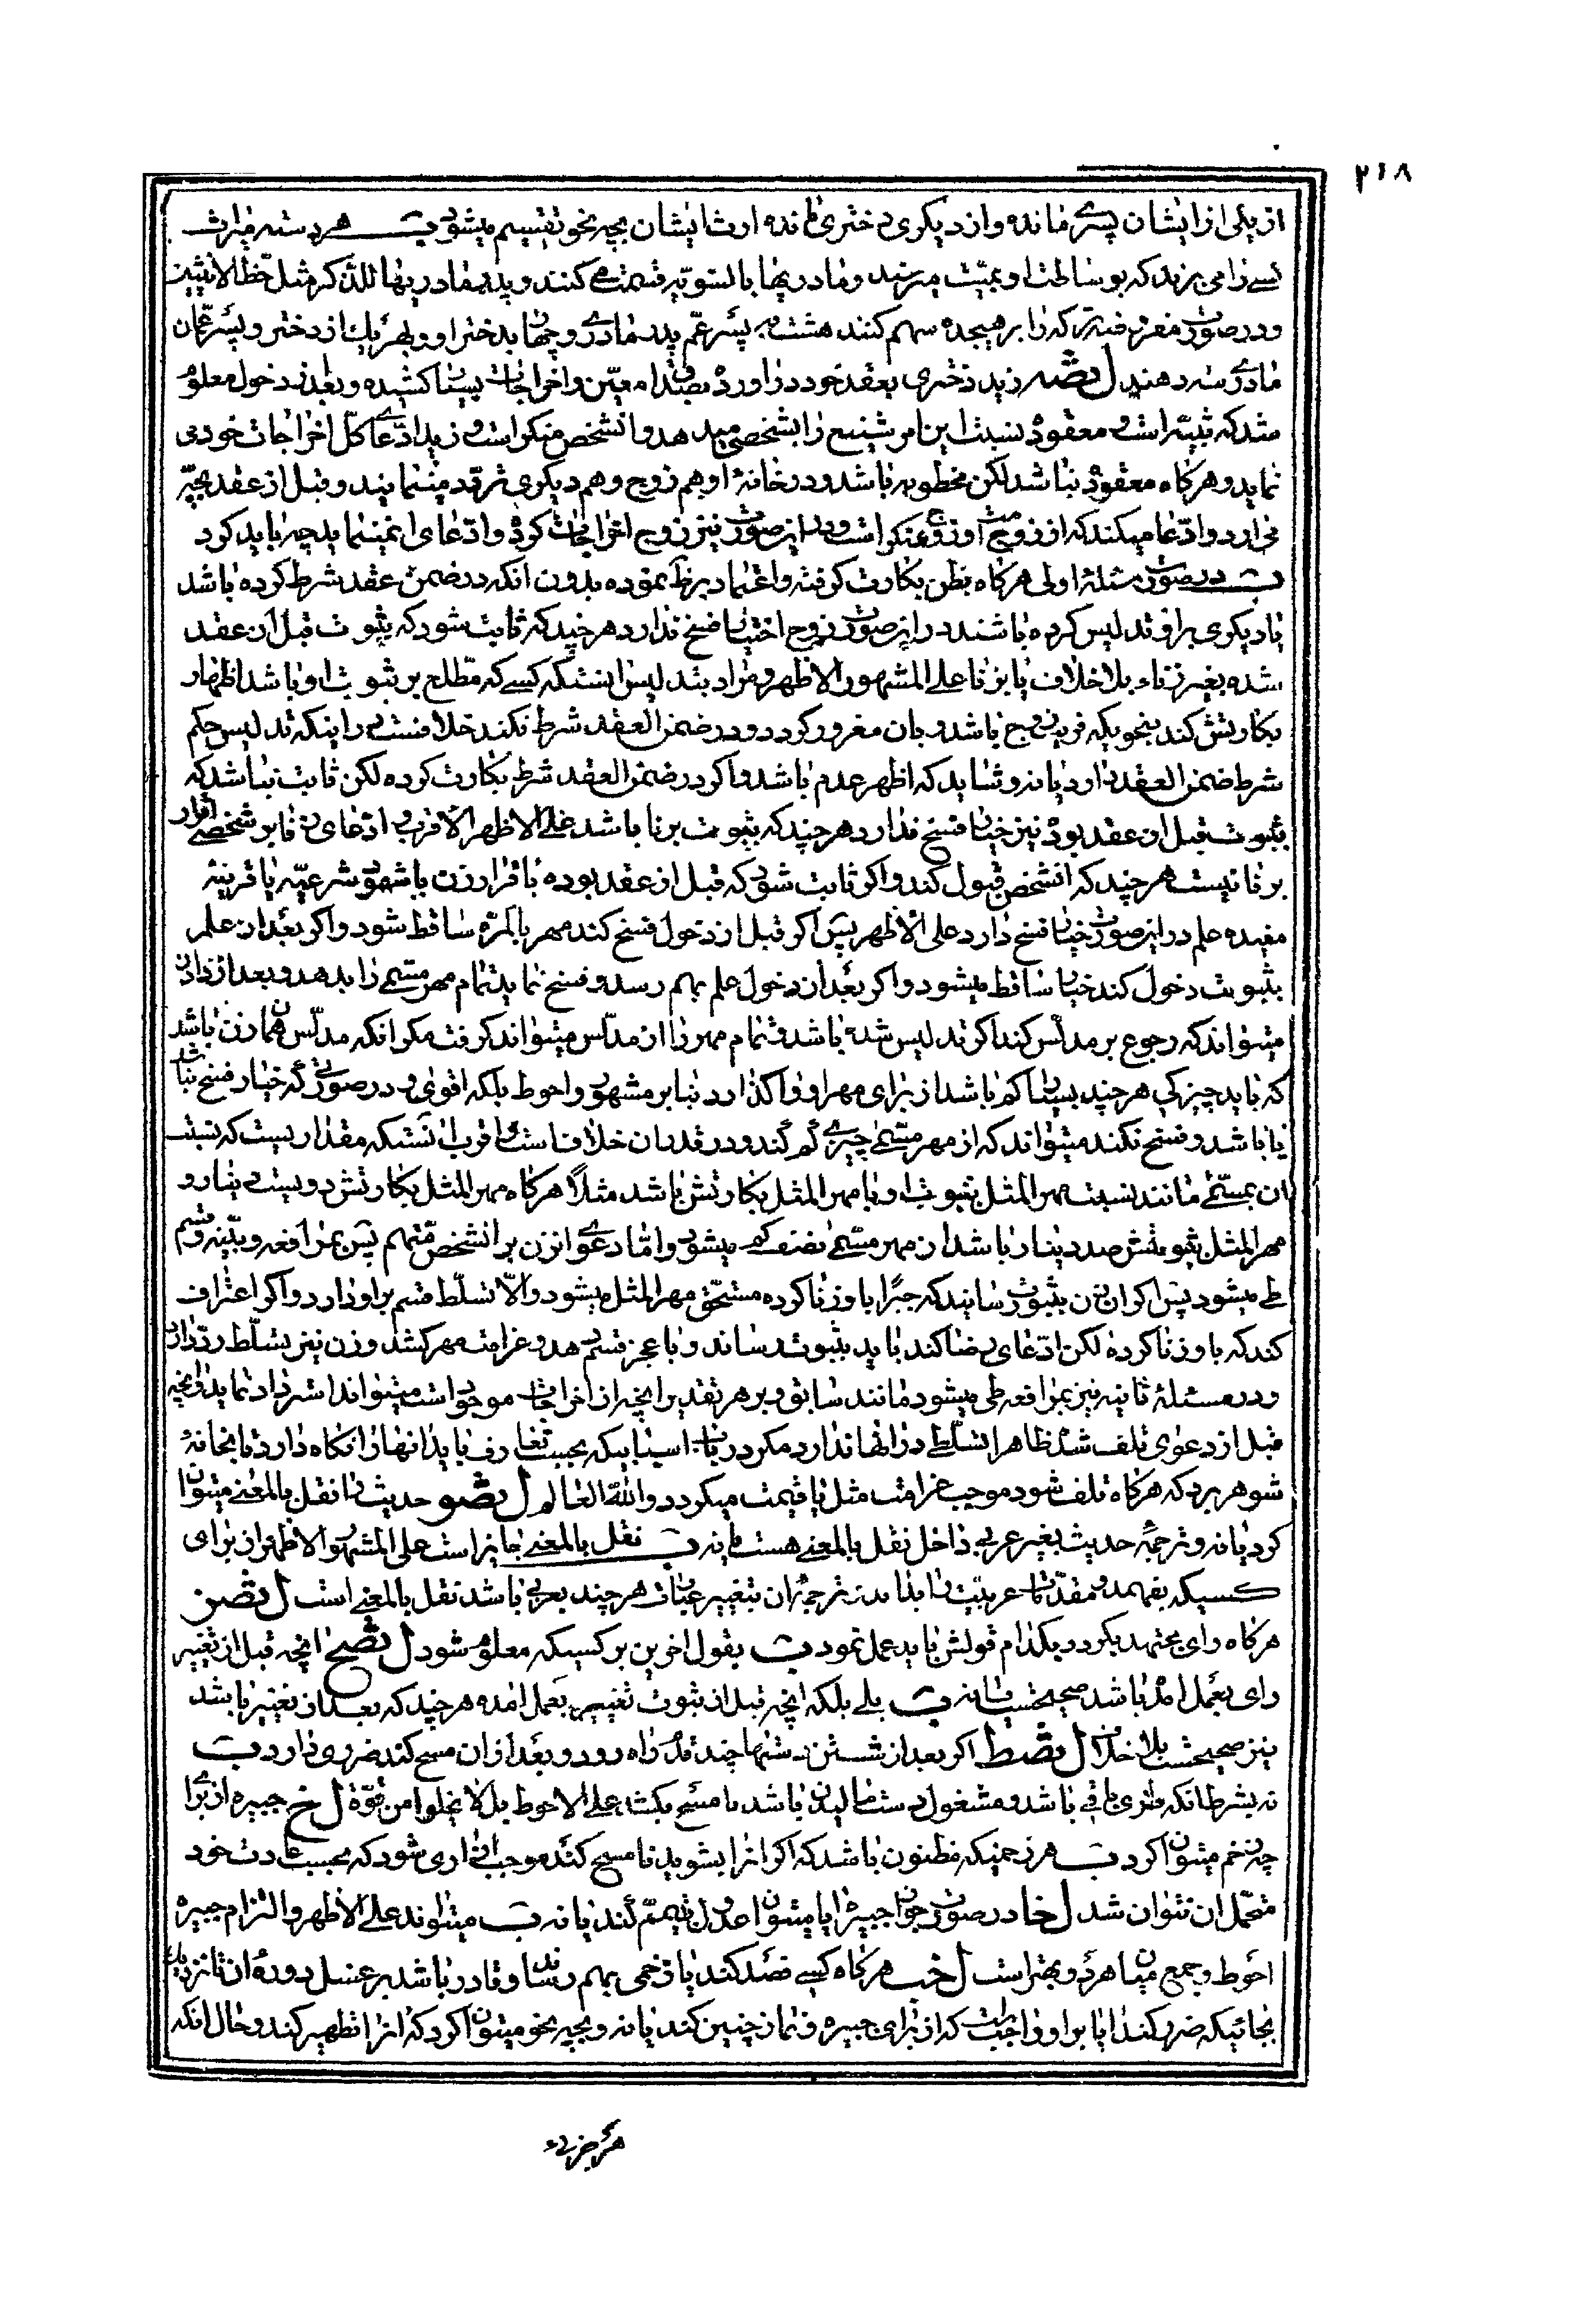 ۲۱۸
از یکی از ایشان پسری مانده و از دیکری دختری مانده ارث ایشان بچه نحو تقسیم میشود ت هر دسته میراث
کسی را می برند که بوساطت او بمیّت میرسند و مادریها بالسّویّه قسمت می کنند و پدر مادریها للذّکر مثل حظّ الانثیین
و در صورت مفروضه ترکه را بر هیجده سهم کنند هشت به پسر عمّ پدر مادری و چهار بدختر او و بهر یک از دختر و پسر عمّان
مادری سه دهند ل بصّه زید دختری بعقد خود در آورده بصداق معیّن و اخراجات بسیار کشیده و بعد از دخول معلوم
شد که ثیّبه است و معقوده نسبت این امر شنیع را بشخصی میدهد و آنشخص منکر است و زید ادّعای کلّ اخراجات خود می
نماید و هرکاه معقوده نباشد لکن مخطوبه باشد و در خانهٔ او هم زوج و هم دیکری تردّد مینمایند و قبل از عقد بچّه
می آرد و ادّعا میکند که از زوج است و زوج منکر است و در این صورت نیز زوج اخراجات کرده و ادّعای آن مینماید چه باید کرد
ت در صورت مسئلهٔ اولی هرکاه بظن بکارت کرفته و اعتماد بر ظن نموده بدون آنکه در ضمن عقد شرط کرده باشد
یا دیکری بر او تدلیس کرده باشند در این صورت زوج اختیار فسخ ندارد هرچند که ثابت شود که ثیوبت قبل از عقد
شده بغیر زناء بلا خلاف یا بزنا علی المشهور الاظهر و مراد بتدلیس اینستکه کسی که مطّلع بر ثیوبت او باشد اظهار
بکارتش کند بنحویکه فریب زوج باشد و بان مغرور کردد و در ضمن العقد شرط نکند خلافست در اینکه تدلیس حکم
شرط ضمن العقد دارد یا نه و شاید که اظهر عدم باشد و اکر در ضمن العقد شرط بکارت کرده لکن ثابت نباشد که
ثیوبت قبل از عقد بوده نیز خیار فسخ ندارد هرچند که ثیوبت بزنا باشد علی الاظهر الاقرب و ادّعای زنا بر شخصی اقرار
بر زنا نیست هرچند که آنشخص قبول کند و اکر ثابت شود که قبل از عقد بوده باقرار زن یا شهود شرعیّه یا قرینه
مفیده علم در این صورت خیار فسخ دارد علی الاظهر پس اکر قبل از دخول فسخ کند مهر بالمرّه ساقط شود و اکر بعد از علم
بثیوبت دخول کند خیار ساقط میشود و اکر بعد از دخول علم بهم رسد و فسخ نماید تمام مهر مسمّی را بدهد و بعد از دادن
میتواند که رجوع بر مدلّس کند اکر تدلیس شده باشد و تمام مهر را از مدلّس میتواند کرفت مکر آنکه مدلّس همان زن باشد
که باید چیزکی هرچند بسیار کم باشد از برای مهر او واکذارد بنا بر مشهور و احوط بلکه اقوی و در صورتی که خیار فسخ نباشد
یا باشد و فسخ نکند میتواند که از مهر مسمّی چیزی کم کند و در قدر آن خلافست و اقرب آنستکه مقداریست که نسبت
آن بمسمّی مانند نسبت مهر المثل ثیوبت او با مهر المثل بکارتش باشد مثلاً هرکاه مهر المثل بکارتش دویست دینار و
مهر المثل ثیوبتش صد دینار باشد از مهر مسمّی نصف کم میشود و امّا دعوی آن زن بر آنشخص متّهم پس بمرافعه و بیّنه و قسم
طی میشود پس اکر آن زن بثبوت رسانید که جبراً باو زنا کرده مستحق مهر المثل میشود و الّا تسلّط قسم بر او دارد و اکر اعتراف
کند که باو زنا کرده لکن ادّعای رضا کند باید بثبوت رساند و با عجز قسم بدهد و غرامت مهر کشد و زن نیز تسلّط ردّ دارد
و در مسئلهٔ ثانیه نیز بمرافعه طی میشود مانند سابق و بر هر تقدیر آنچه از اخراجات موجود است میتواند استرداد نماید و آنچه
قبل از دعوی تلف شده ظاهراً تسلّطی در آنها ندارد مکر در باب اسبابیکه بحسب تعارف باید آنها را نکاه دارد تا بخانهٔ
شوهر برد که هرکاه تلف شود موجب غرامت مثل یا قیمت میکردد و الله العالم ل بضو حدیث را نقل بالمعنی میتوان
کرد یا نه و ترجمهٔ حدیث بغیر عربی داخل نقل بالمعنی هست یا نه ت نقل بالمعنی جایز است علی المشهور الاظهر از برای
کسیکه بفهمد و مقدّمات عربیّت را بداند و ترجمهٔ آن بتغییر عبارت هرچند بعربی باشد نقل بالمعنی است ل بضز
هرکاه رای مجتهد بکردد بکدام قولش باید عمل نمود ت بقول آخرین بر کسیکه معلوم شود ل بضح آنچه قبل از تغییر
رای بعمل آمده باشد صحیحست یا نه ت بلی بلکه آنچه قبل از ثبوت تغییر بعمل آمده هرچند که بعد از تغییر باشد
نیز صحیحست بلا خلاف ل بضط اکر بعد از شستن دستها چند قدم راه رود و بعد از آن مسح کند ضرری دارد ت
نه بشرط آنکه تری باقی باشد و مشغول دست مالیدن باشد تا مسح بکشد علی الاحوط بل لا یخلو من قوّة ل خ جبیره از برای
چه زخم میتوان کرد ت هر زخمیکه مظنون باشد که اکر آنرا بشوید یا مسح کند موجب آزاری شود که بحسب عادت خود
متحمّل آن نتوان شد ل خا در صورت جواز جبیره آیا میتوان عدول به تیمّم کند یا نه ت میتواند علی الاظهر و التزام جبیره
احوط و جمع میان هر دو بهتر است ل خب هرکاه کسی فصد کند یا زخمی بهم رساند و قادر باشد بر غسل دورهٔ آن تا نزدیک
بجائیکه ضرر کند آیا بر او واجبست که از برای جبیره و نماز چنین کند یا نه و بچه نحو میتوان کرد که آنرا تطهیر کند و حال آنکه
هر جزء